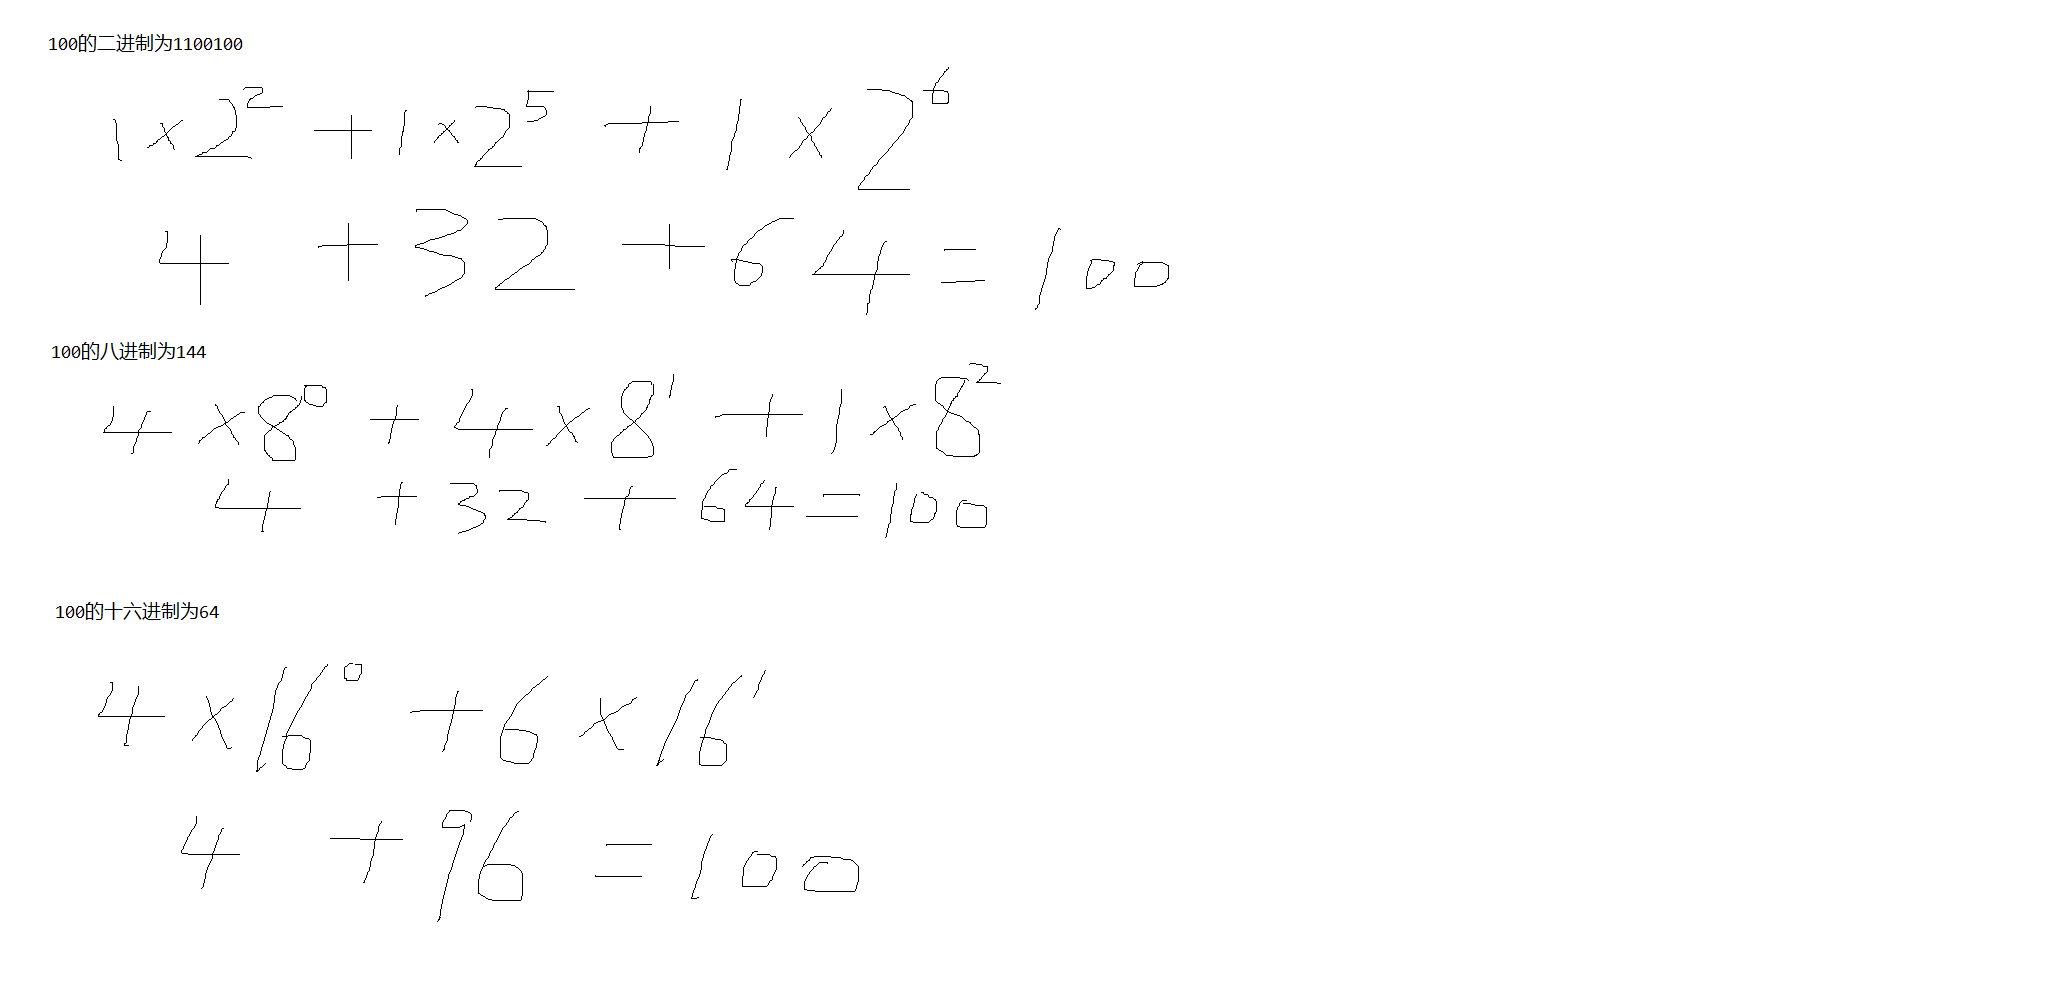 100的二进制为1100100
1×2² + 1×2⁵ + 1×2⁶
4 + 32 + 64 = 100
100的八进制为144
4×8⁰ + 4×8¹ + 1×8²
4 + 32 + 64 = 100
100的十六进制为64
4×16⁰ + 6×16¹
4 + 96 = 100